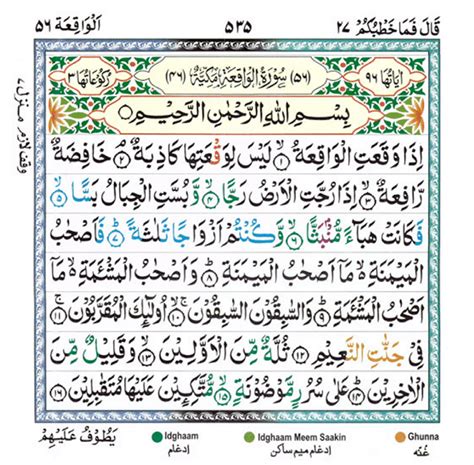 قَالَ فَمَا خَطْبُكُمْ ٢٧ ٥٣٥ اَلْوَاقِعَة ٥٦
اٰيَاتُهَا ٩٦ (٥٦) سُوْرَةُ الْوَاقِعَةِ مَكِّيَّةٌ (٤٦) رُكُوْعَاتُهَا ٣
بِسْمِ اللّٰهِ الرَّحْمٰنِ الرَّحِيْمِ
اِذَا وَقَعَتِ الْوَاقِعَةُ ۝١ لَيْسَ لِوَقْعَتِهَا كَاذِبَةٌ ۝٢ خَافِضَةٌ
رَّافِعَةٌ ۝٣ اِذَا رُجَّتِ الْاَرْضُ رَجًّا ۝٤ وَّبُسَّتِ الْجِبَالُ بَسًّا ۝٥
فَكَانَتْ هَبَآءً مُّنْۢبَثًّا ۝٦ وَّكُنْتُمْ اَزْوَاجًا ثَلٰثَةً ۝٧ فَاَصْحٰبُ
الْمَيْمَنَةِ مَاۤ اَصْحٰبُ الْمَيْمَنَةِ ۝٨ وَاَصْحٰبُ الْمَشْـَٔمَةِ مَاۤ
اَصْحٰبُ الْمَشْـَٔمَةِ ۝٩ وَالسّٰبِقُوْنَ السّٰبِقُوْنَ ۝١٠ اُولٰٓئِكَ الْمُقَرَّبُوْنَ ۝١١
فِيْ جَنّٰتِ النَّعِيْمِ ۝١٢ ثُلَّةٌ مِّنَ الْاَوَّلِيْنَ ۝١٣ وَقَلِيْلٌ مِّنَ
الْاٰخِرِيْنَ ۝١٤ عَلٰى سُرُرٍ مَّوْضُوْنَةٍ ۝١٥ مُّتَّكِـِٕيْنَ عَلَيْهَا مُتَقٰبِلِيْنَ ۝١٦
وقف لازم منزل ٧
يَطُوْفُ عَلَيْهِمْ
Idghaam
اِدغام
Idghaam Meem Saakin
اِدغام میم ساکن
Ghunna
غُنّه